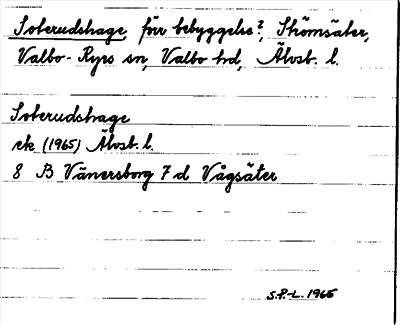 Soterudshage, förr bebyggelse?, Strömsäter,
Valbo-Ryrs sn, Valbo hd, Älvsb. l.
Soterudshage
ek (1965) Älvsb. l.
8 B Vänersborg 7 d Vågsäter
S.P.-L. 1965